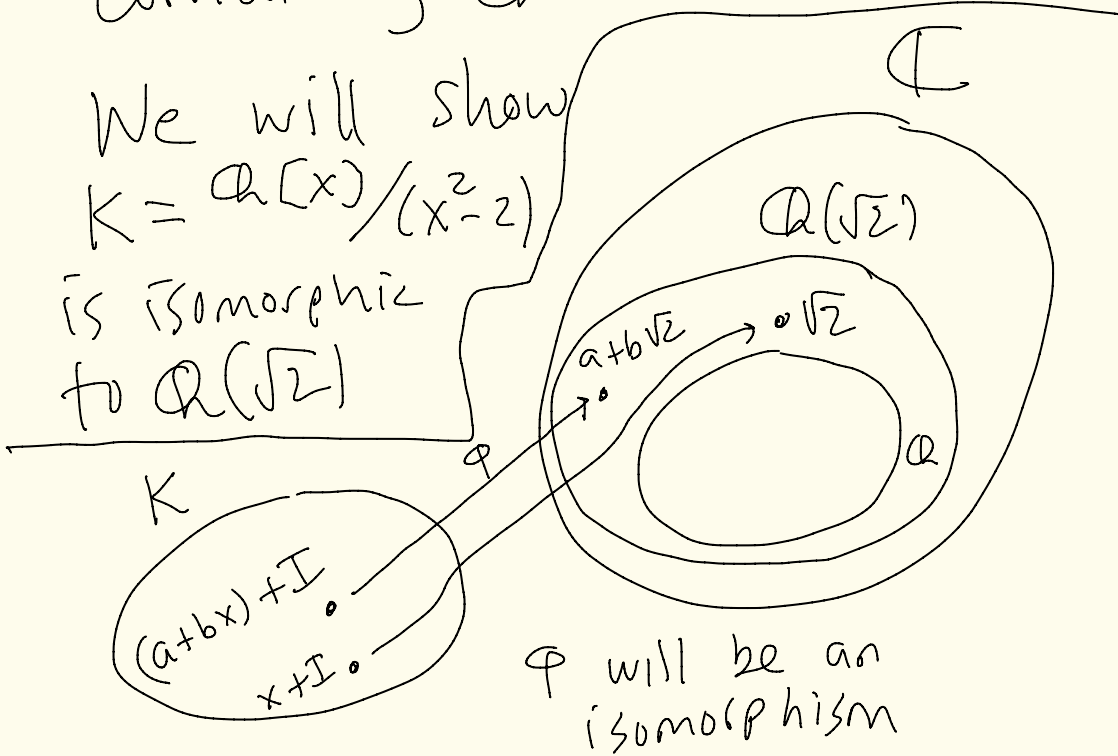 We will show
K = ℚ[x]/(x²-2)
is isomorphic
to ℚ(√2)
ℂ
ℚ(√2)
a+b√2
√2
ℚ
φ
K
(a+bx)+I
x+I
φ will be an
isomorphism